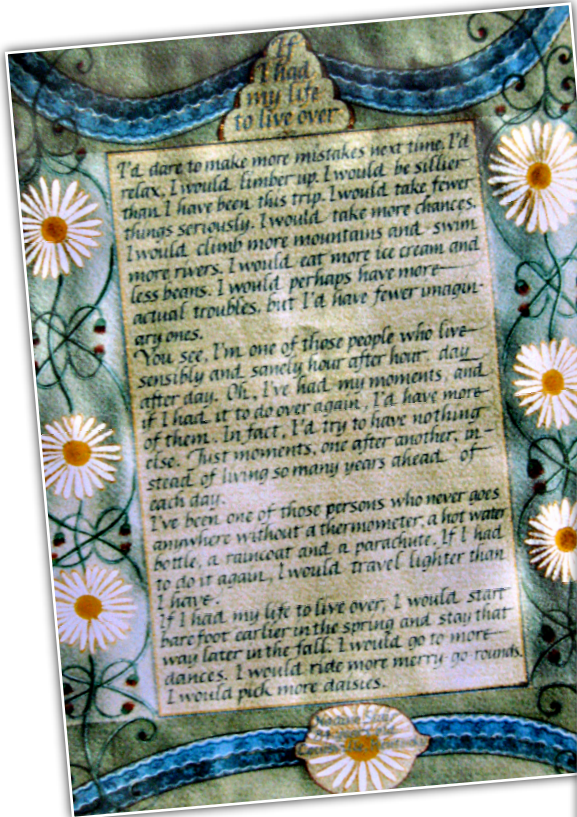 If
I had
my life
to live over
I'd dare to make more mistakes next time. I'd
relax, I would limber up. I would be sillier
than I have been this trip. I would take fewer
things seriously. I would take more chances.
I would climb more mountains and swim
more rivers. I would eat more ice cream and
less beans. I would perhaps have more
actual troubles, but I'd have fewer imagin-
ary ones.
You see, I'm one of those people who live
sensibly and sanely hour after hour, day
after day. Oh, I've had my moments, and
if I had it to do over again, I'd have more
of them. In fact, I'd try to have nothing
else. Just moments, one after another, in-
stead of living so many years ahead of
each day.
I've been one of those persons who never goes
anywhere without a thermometer, a hot water
bottle, a raincoat and a parachute. If I had
to do it again, I would travel lighter than
I have.
If I had my life to live over, I would start
barefoot earlier in the spring and stay that
way later in the fall. I would go to more
dances. I would ride more merry-go-rounds.
I would pick more daisies.
Nadine Stair